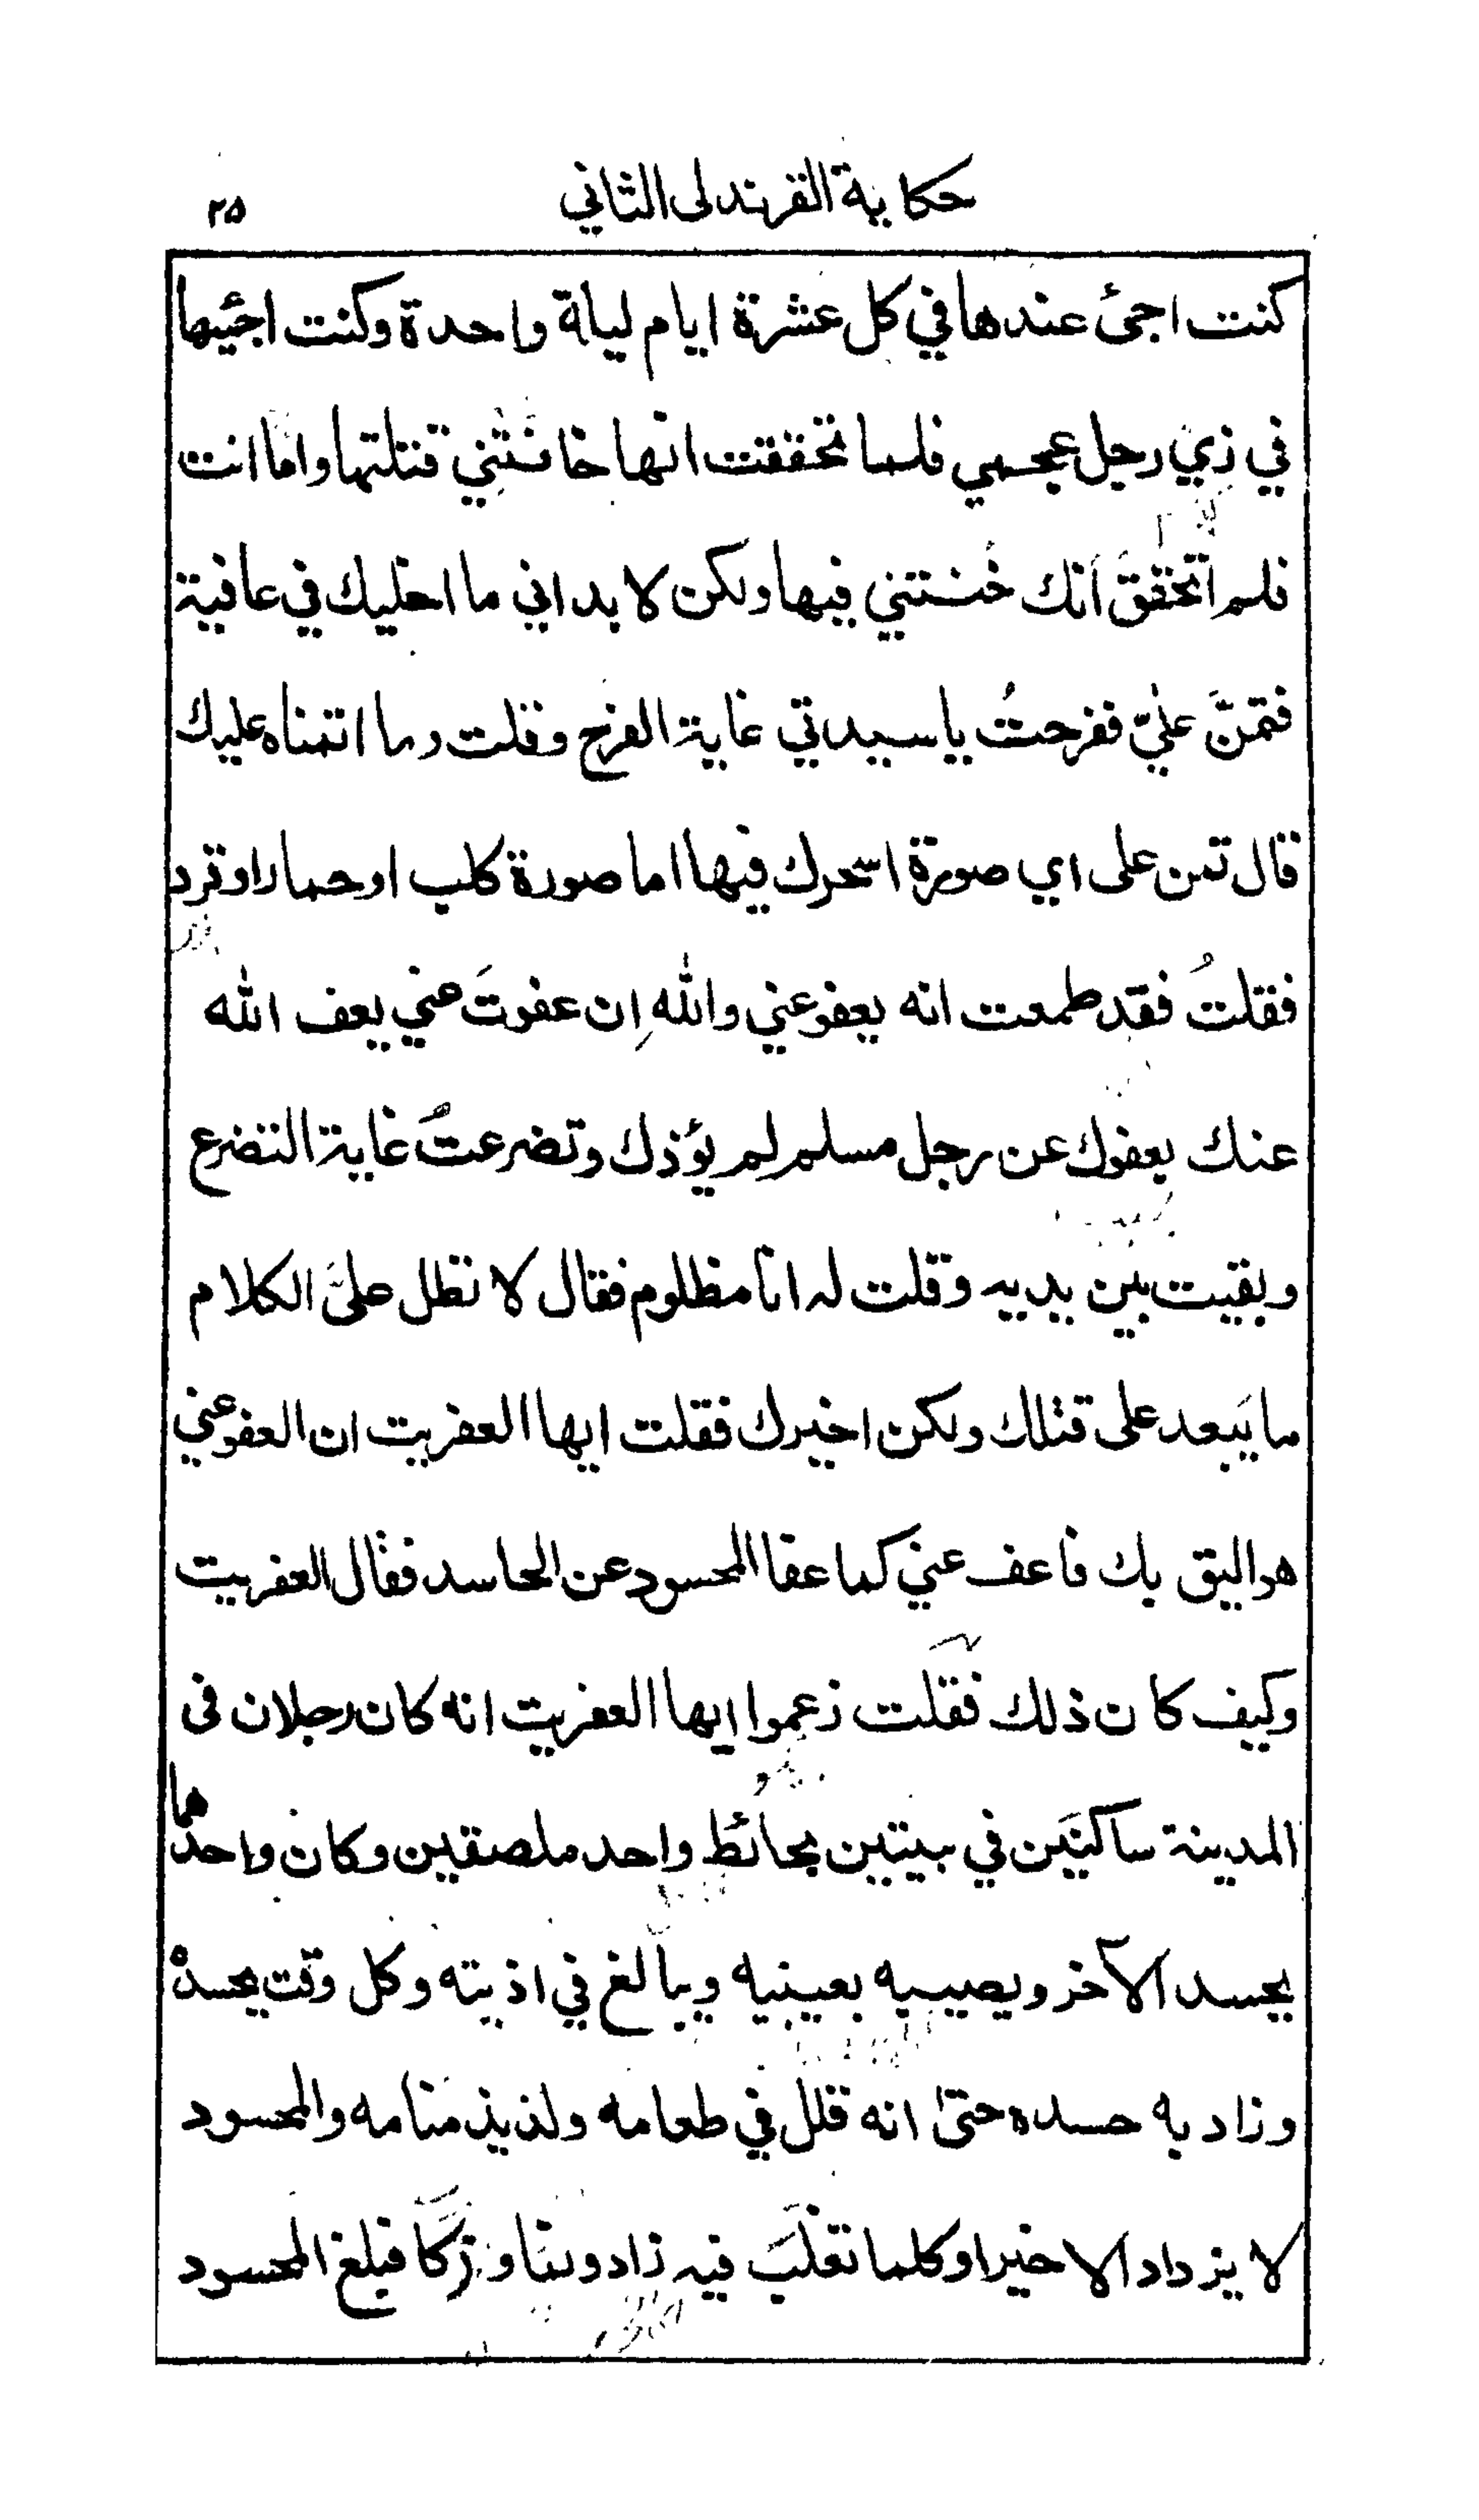 حكاية القرندلى الثاني
٢٥
كنت اجئ عندها في كل عشرة ايام ليلة واحدة وكنت اجئيها
في زي رجل عجمي فلما تحققت انها خانتني قتلتها واما انت
فلم اتحقق انك خنتني فيها ولكن لا بد اني ما اخليك في عافية
فتمنَّ عليّ ففرحتُ يا سيدتي غاية الفرح وقلت وما اتمناه عليك
قال تمن على اي صورة اسحرك فيها اما صورة كلب او حمار او قرد
فقلتُ فقد طمعت انه يعفو عني والله اِن عفوتَ عني يعف الله
عنك بعفوك عن رجل مسلم لم يؤذك وتضرعتُ غاية التضرع
وبقيت بين يديه وقلت له انا مظلوم فقال لا تطل عليَّ الكلام
ما يَبعد على قتلك ولكن اخيرك فقلت ايها العفريت ان العفو عني
هو اليق بك فاعف عني كما عفا المحسود عن الحاسد فقال العفريت
وكيف كان ذلك فقلت زعموا ايها العفريت انه كان رجلان فى
المدينة ساكنَين في بيتين بحائط واحد ملصقين وكان واحدهما
يحسد الآخر ويصيبه بعينيه ويبالغ في اذيته وكل وقت يحسده
وزاد به حسده حتى انه قلل في طعامه ولذيذ منامه والمحسود
لا يزداد الا خيرا وكلما تغلَّب فيه زاد ونمَا وزكَّا فبلغ المحسود